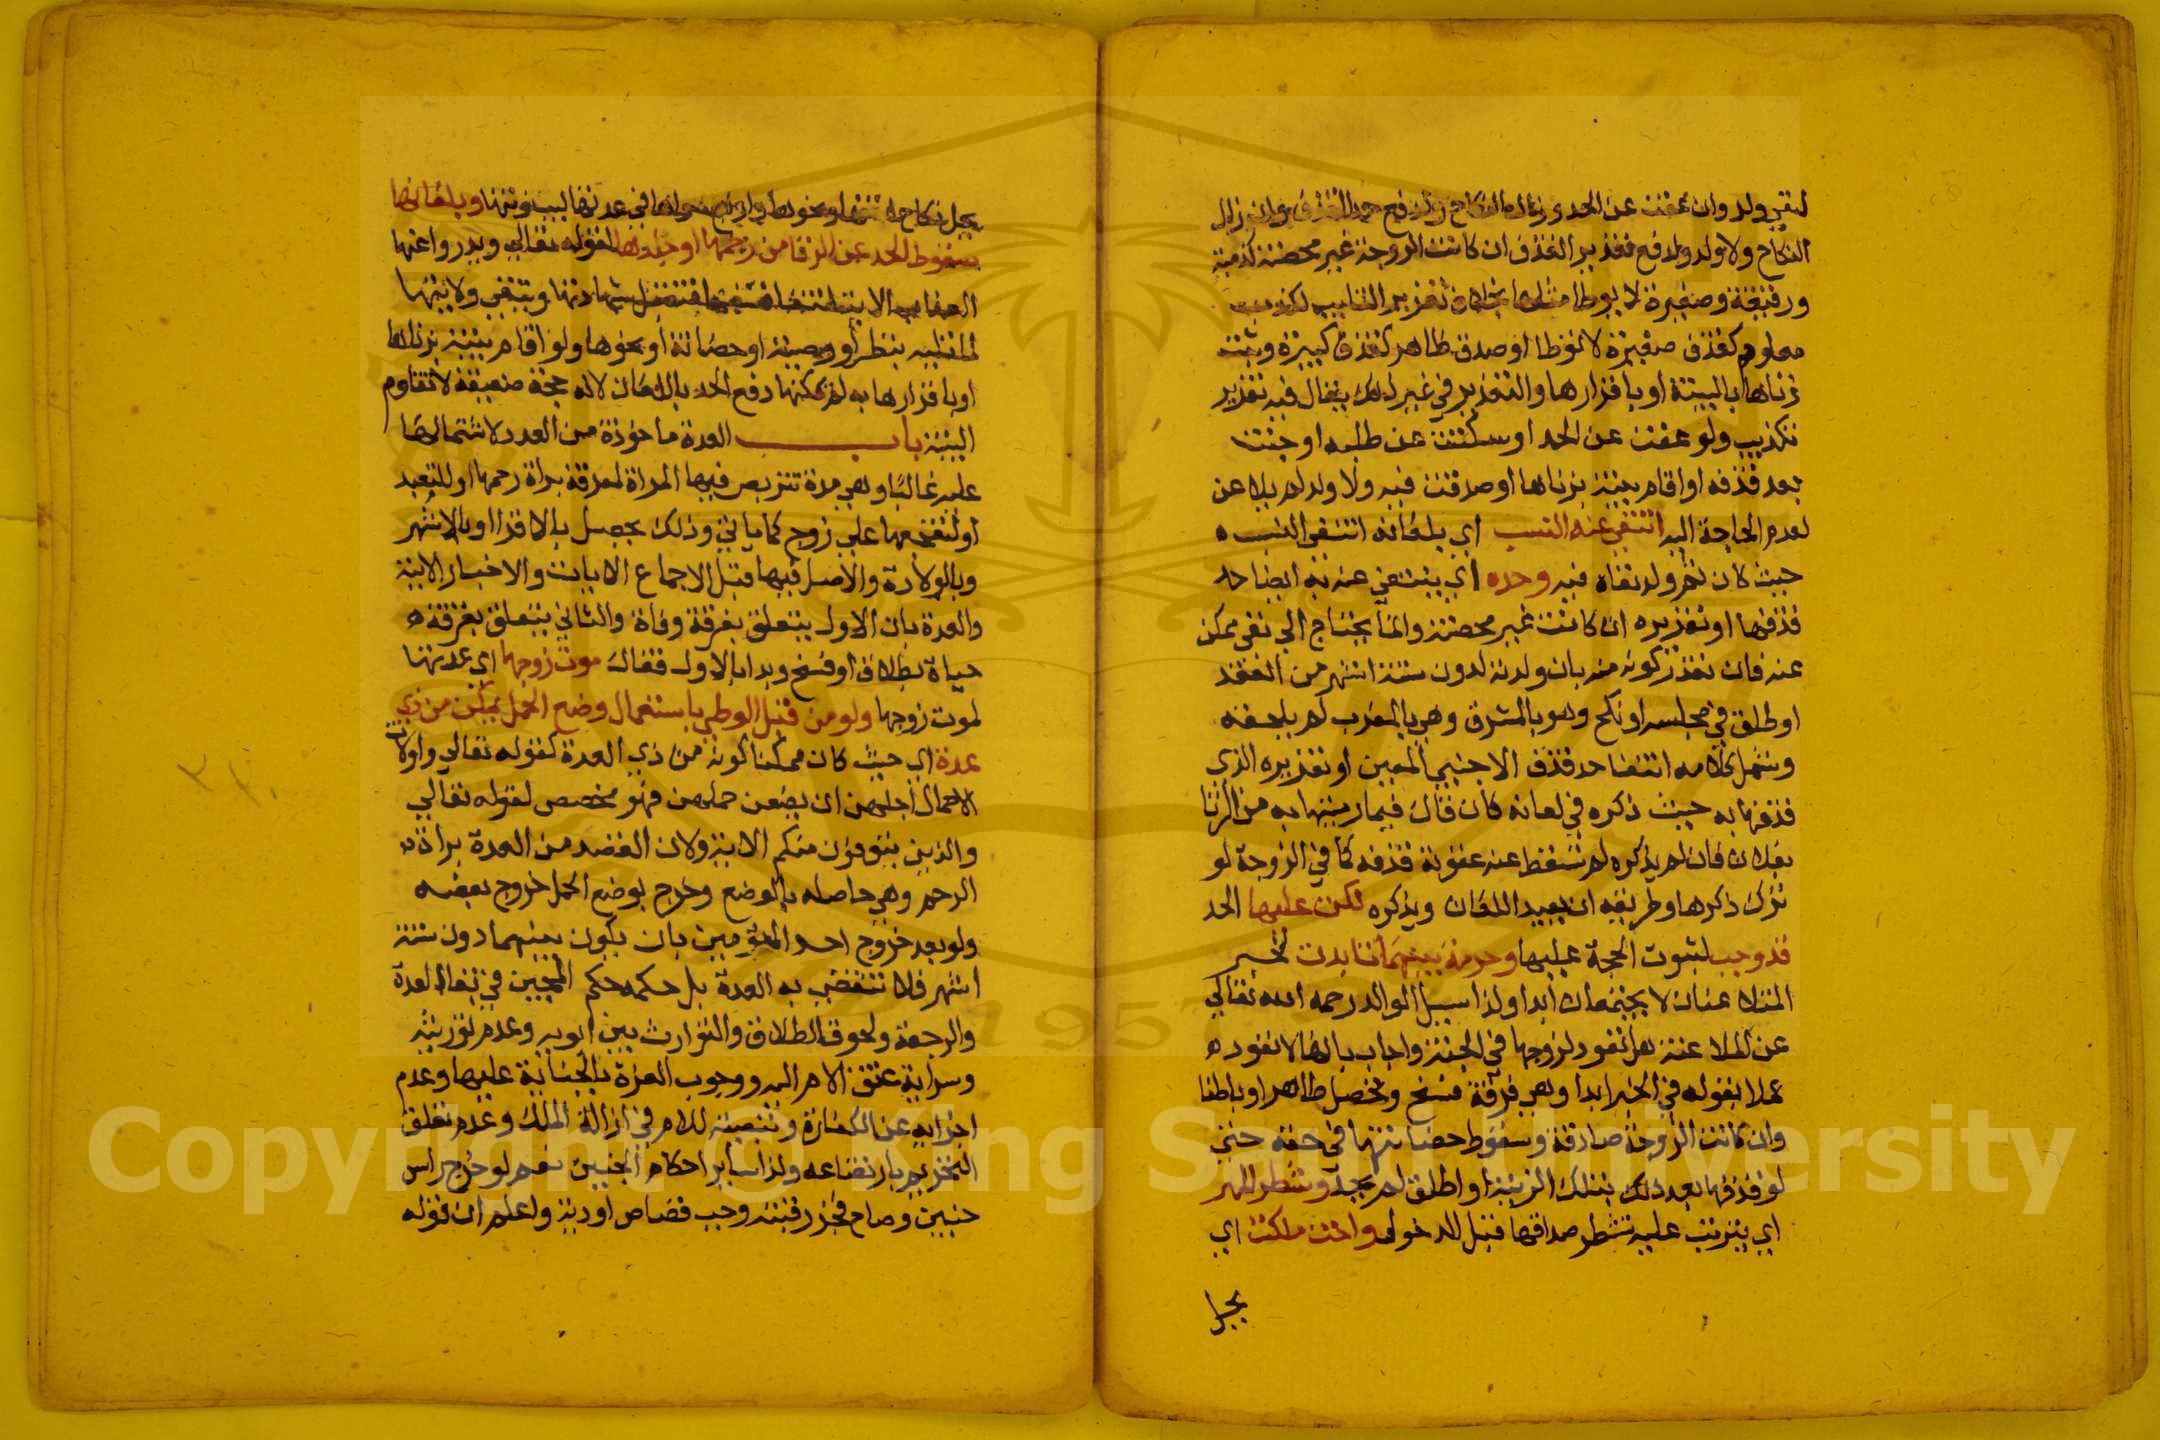 لنفي ولد وان عفت عن الحد وزال النكاح ولدفع حد القذف وان زال
النكاح ولا ولد ولدفع تعزير القذف ان كانت الزوجة غير محصنة كذمية
ورقيقة وصغيرة لا يوطا مثلها بخلاف تعزير التاديب لكذب
معلوم كقذف صغيرة لا توطا او صدق ظاهر كقذف كبيرة وثبت
زناها بالبينة او باقرارها والتعزير في غير ذلك يقال فيه تعزير
تكذيب ولو عفت عن الحد او سكتت عن طلبه او جنت
بعد قذفه او اقام بينة بزناها او صدقت فيه ولا ولد لم يلاعن
لعدم الحاجة اليه انتفي عنه النسب اي بلعانه انتفي النسب
حيث كان ثم ولد نفاه فيه وحده اي ينتفي عنه به ايضا حد
قذفها او تعزيره ان كانت غير محصنة وانما يحتاج الي نفي ممكن
عنه فان تعذر كونه منه بان ولدته لدون ستة اشهر من العقد
او طلق في مجلسه او نكح وهو بالمشرق وهي بالمغرب لم يلحقه
وشمل كلامه انتفا حد قذف الاجنبي المعين او تعزيره الذي
قذفها به حيث ذكره في لعانه كان قال فيما رميتها به من الزنا
بفلان فان لم يذكره لم تسقط عنه عقوبة قذفه كما في الزوجة لو
ترك ذكرها وطريقه ان يعيد اللعان ويذكره لكن عليها الحد
قد وجب لثبوت الحجة عليها وحرمة بينهما تابدت لخبر
المتلاعنان لا يجتمعان ابدا ولذا سيل الوالد رحمه الله تعالي
عن الملاعنة هل تعود لزوجها في الجنة واجاب بانها لا تعود
عملا بقوله في الخبر ابدا وهي فرقة فسخ وتحصل ظاهرا وباطنا
وان كانت الزوجة صادقة وسقوط حصانتها في حقه حتي
لو قذفها بعد ذلك بتلك الزنية او اطلق لم يحد وشطر المهر
اي يترتب عليه تشطر صداقها قبل الدخول واخت ملكت اي
يحل
يحل نكاح اختها ونحوها واربع سواها في عدتها لبينونتها وبلعانها
سقوط الحد عن الزنا من رجمها او جلدها لقوله تعالي ويدروا عنها
العذاب الاية
لتغليبه بنظر او وصية او حضانة او نحوها ولو اقام بينة بزناها
او باقرارها به لم يمكنها دفع الحد باللعان لانه حجة ضعيفة لا تقاوم
البينة باب العدة ماخوذة من العدد لاشتمالها
عليه غالبا وهي مدة تتربص فيها المراة لمعرفة براة رحمها او للتعبد
او لتفجعها علي زوج كما ياتي وذلك يحصل بالاقرا او بالاشهر
وبالولادة والاصل فيها قبل الاجماع الايات والاخبار الاتية
والعدة بان الاول يتعلق بفرقة وفاة والثاني يتعلق بفرقة
حياة بطلاق او فسخ وبدا بالاول فقال موت زوجها اي عدتها
لموت زوجها ولو من قبل الوطي باستعمال وضع الحمل يمكن من ذي
عدة اي حيث كان ممكنا كونه من ذي العدة كقوله تعالي واولات
الاحمال اجلهن ان يضعن حملهن فهو مخصص لقوله تعالي
والذين يتوفون منكم الاية ولان القصد من العدة براة
الرحم وهي حاصله بالوضع وخرج بوضع الحمل خروج بعضه
ولو بعد خروج احد التومين بان يكون بينهما دون ستة
اشهر فلا تنقضي به العدة بل حكمه حكم الجنين في بقاء العدة
والرجعة ولحوق الطلاق والتوارث بين ابويه وعدم توريثه
وسراية عتق الام اليه ووجوب الغرة بالجناية عليها وعدم
اجزايه عن الكفارة وتبعيته للام في ازالة الملك وعدم تعلق
التحريم بارتضاعه ولذا ساير احكام الجنين نعم لو خرج راس
جنين وصاح فحز رقبته وجب قصاص او دية واعلم ان قوله